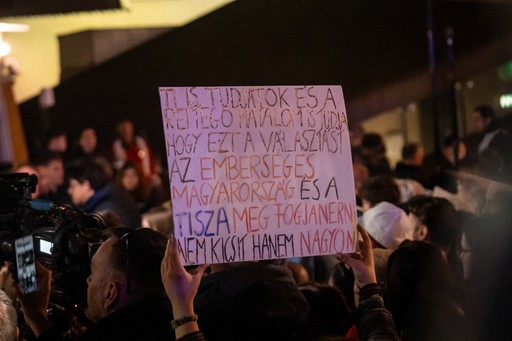 TI IS TUDJÁTOK ÉS A
REJTEGŐ HATALOM IS TUDJA
HOGY EZT A VÁLASZTÁST
AZ EMBERSÉGES
MAGYARORSZÁG ÉS A
TISZA MEG FOGJA NYERNI
NEM KICSIT HANEM NAGYON